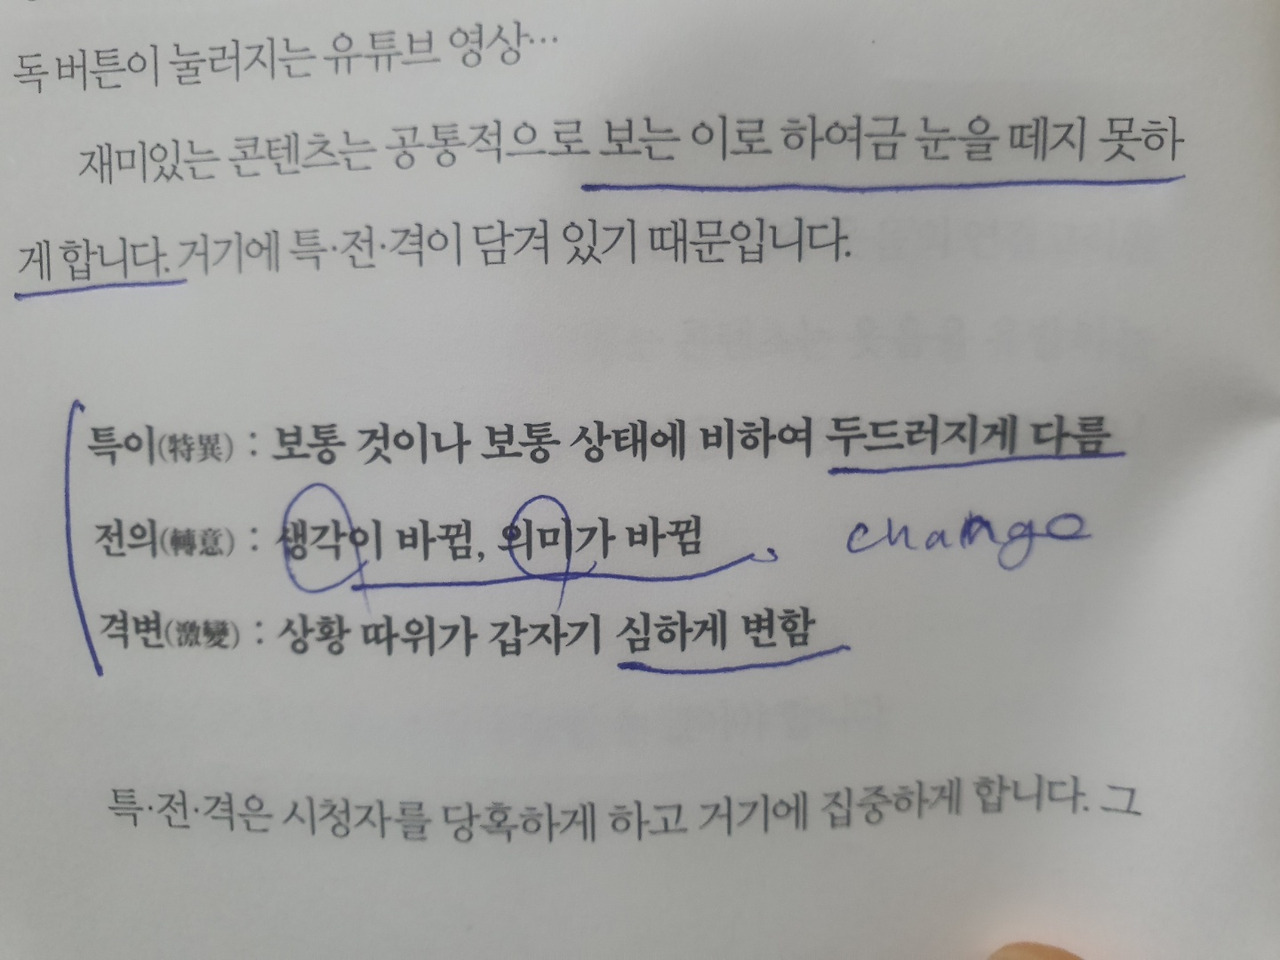 독 버튼이 눌러지는 유튜브 영상…
재미있는 콘텐츠는 공통적으로 보는 이로 하여금 눈을 떼지 못하
게 합니다. 거기에 특·전·격이 담겨 있기 때문입니다.
특이(特異) : 보통 것이나 보통 상태에 비하여 두드러지게 다름
전의(轉意) : 생각이 바뀜, 의미가 바뀜 change
격변(激變) : 상황 따위가 갑자기 심하게 변함
특·전·격은 시청자를 당혹하게 하고 거기에 집중하게 합니다. 그